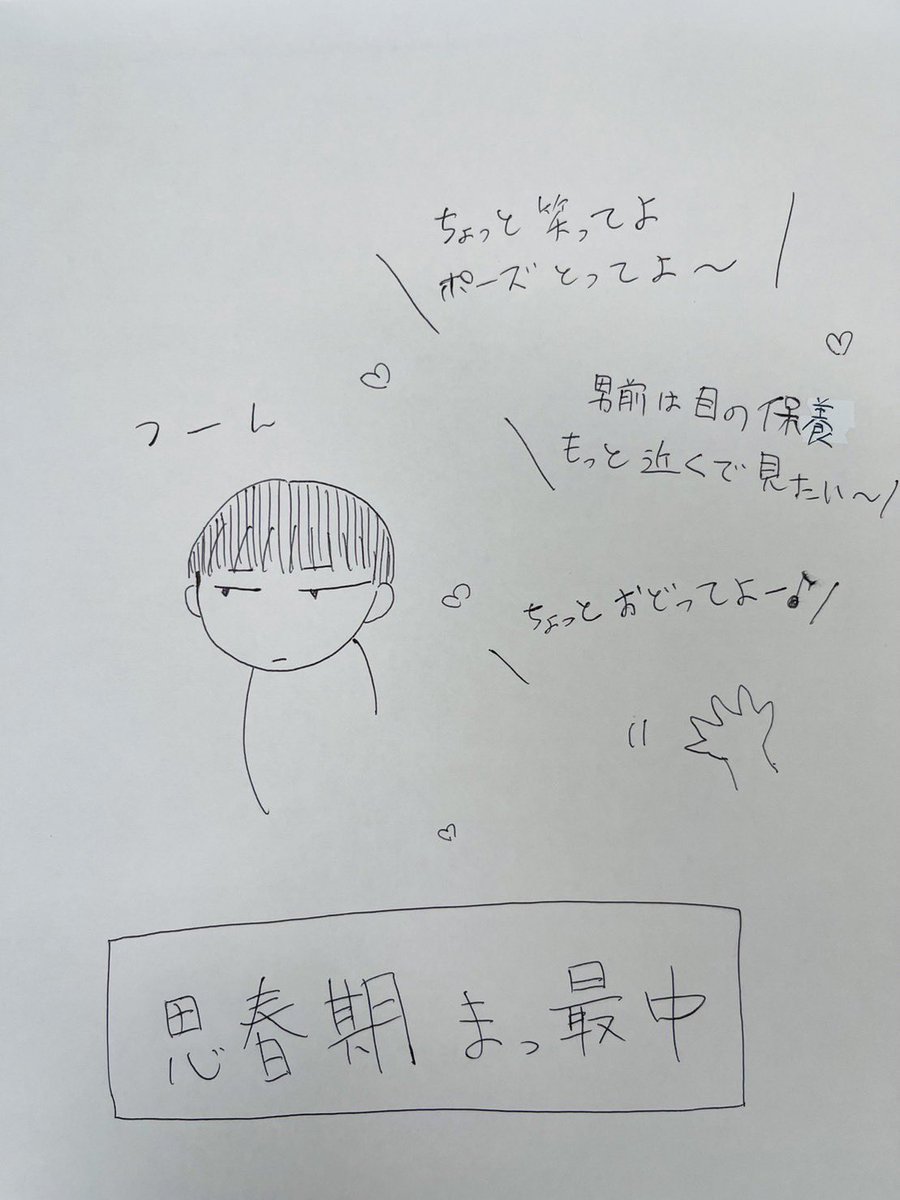 ちょっと笑ってよ
ポーズとってよ〜
男前は目の保養
もっと近くで見たい〜
つーん
ちょっとおどってよー♪
思春期まっ最中